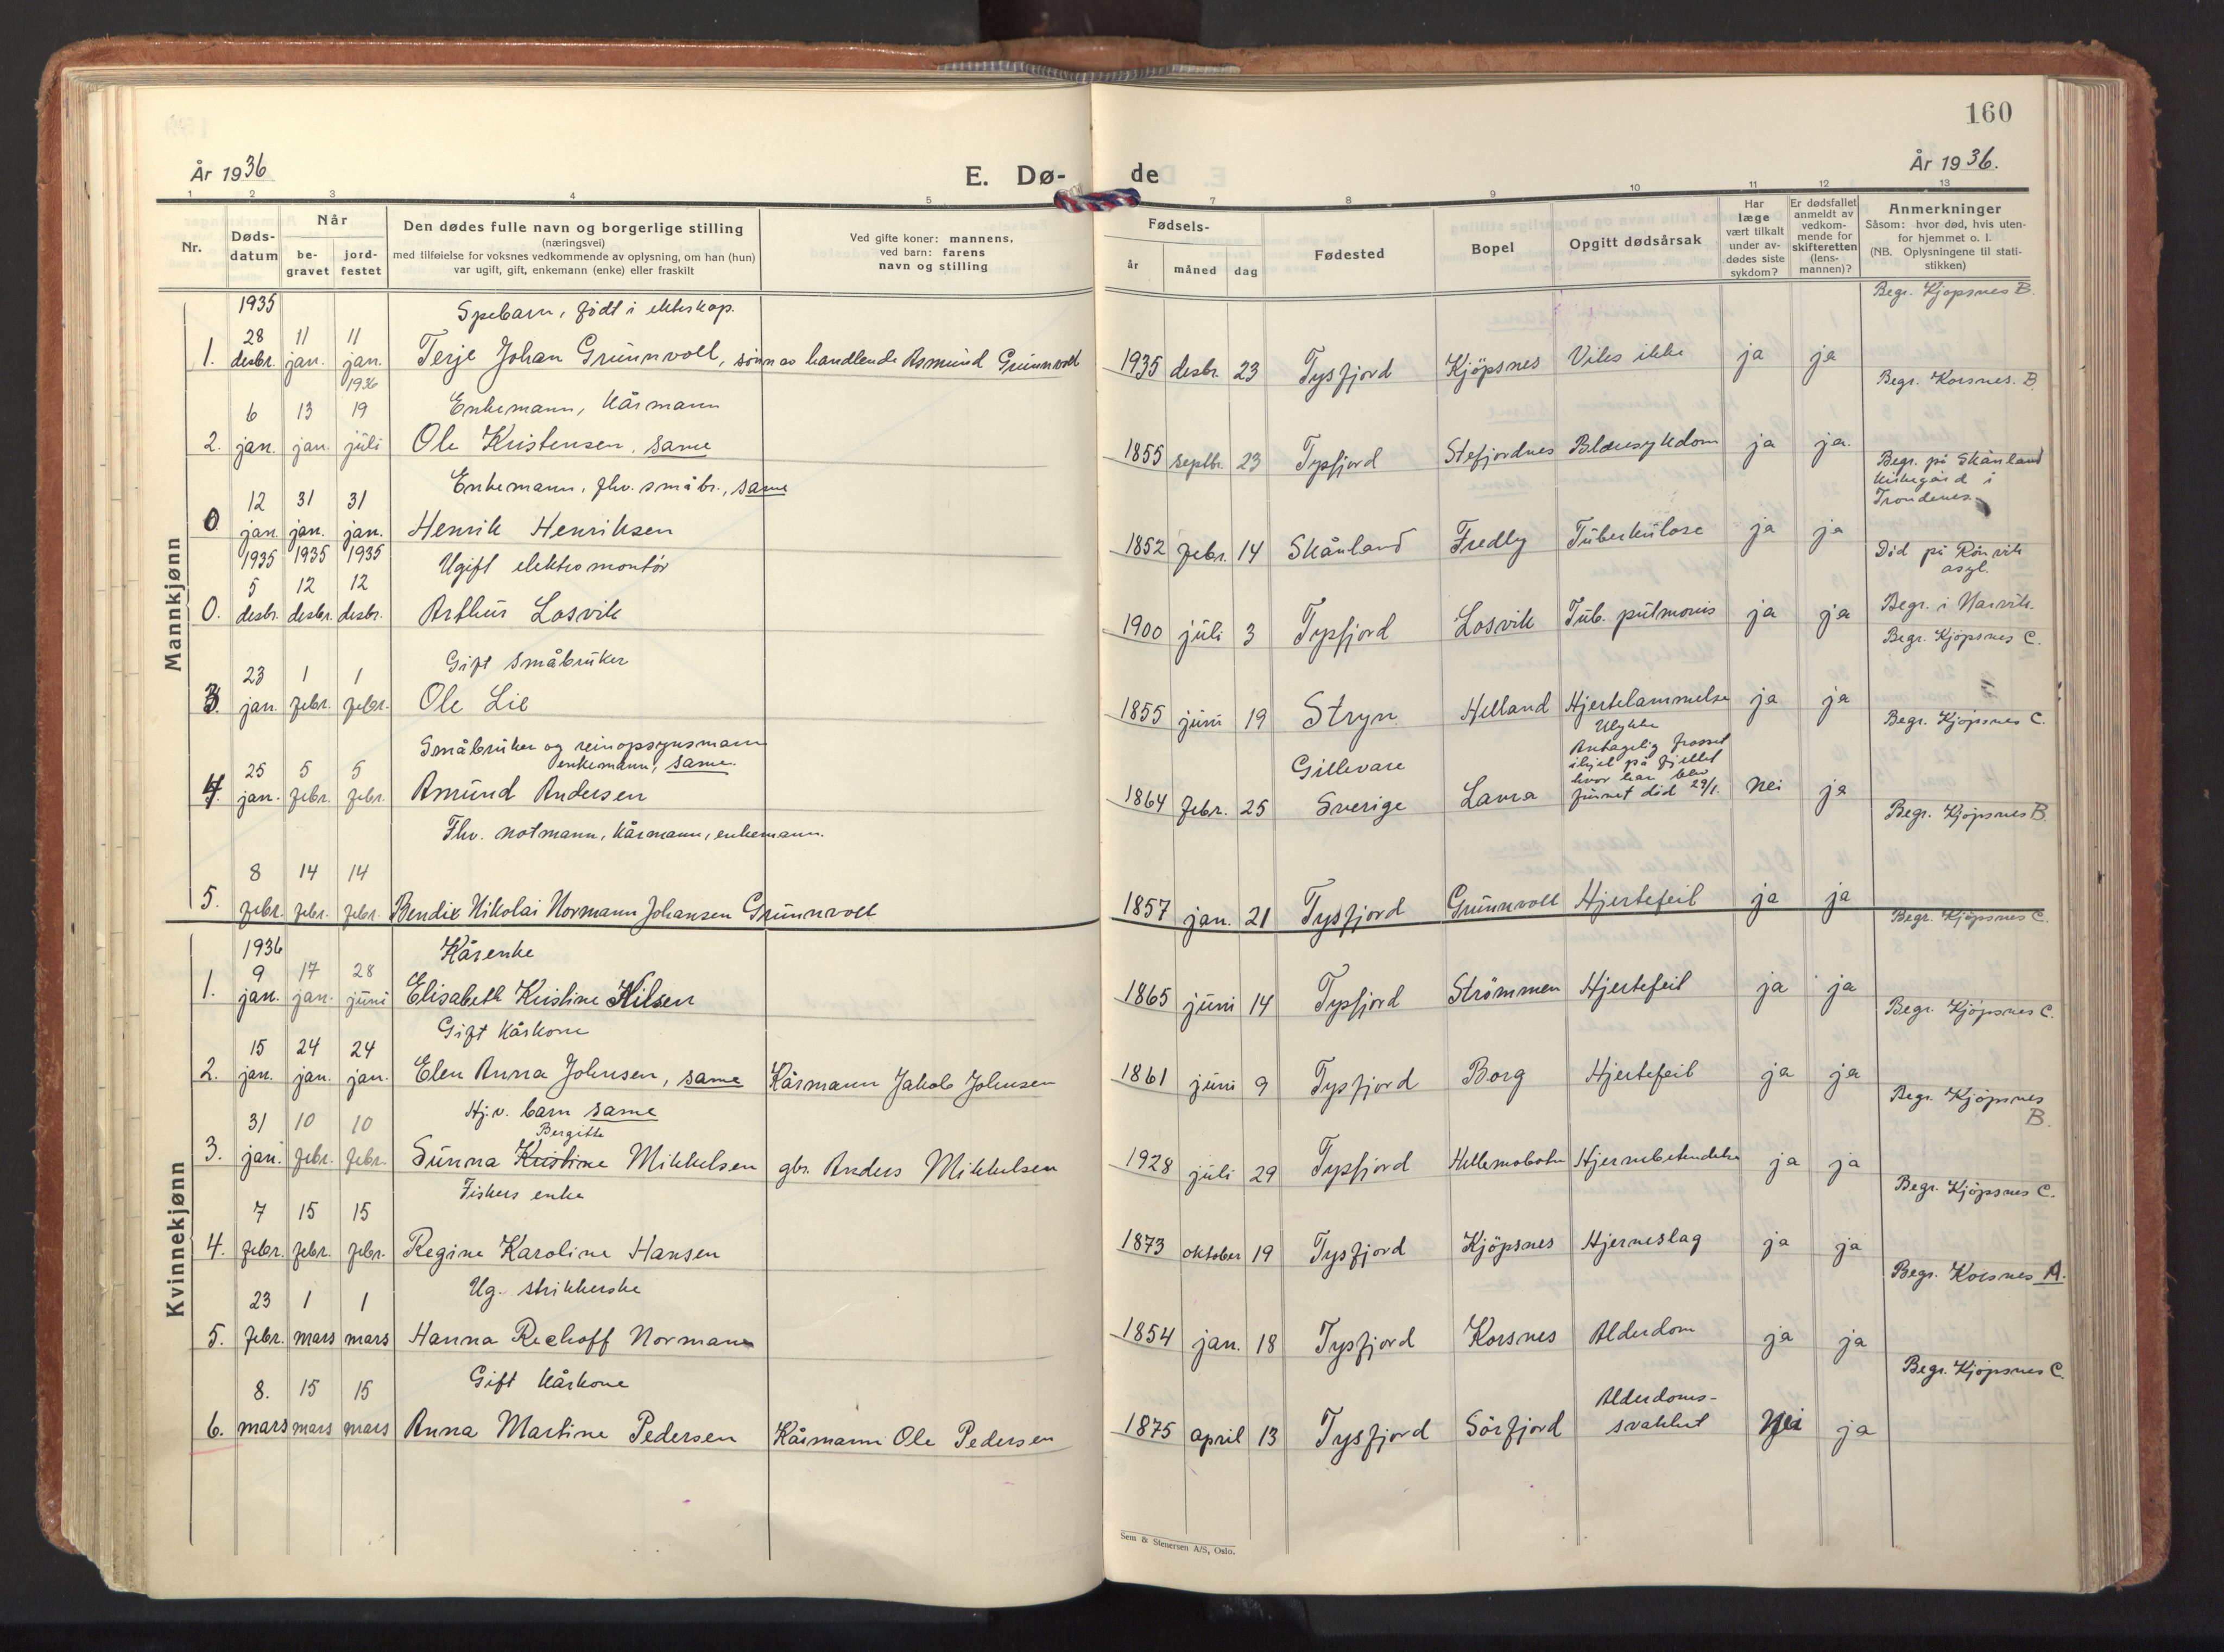 160
År 1936
E. Dø-
de
År 1936.
1 2 3 4 5 7 8 9 10 11 12 13
Nr.
Døds-
datum
Når
be-
gravet
jord-
festet
Den dødes fulle navn og borgerlige stilling
(næringsvei)
med tilføielse for voksnes vedkommende av oplysning, om han (hun)
var ugift, gift, enkemann (enke) eller fraskilt
Ved gifte koner: mannens,
ved barn: farens
navn og stilling
Fødsels-
år måned dag
Fødested
Bopel
Opgitt dødsårsak
Har
læge
vært tilkalt
under av-
dødes siste
sykdom?
Er dødsfallet
anmeldt av
vedkom-
mende for
skifteretten
(lens-
mannen)?
Anmerkninger
Såsom: hvor død, hvis uten-
for hjemmet o. l.
(NB. Oplysningene til stati-
stikken)
Mannkjønn
1935 Spebarn, født i ekteskap. Begr. Kjøpsnes B.
28 11 11
1. desbr. jan. jan. Terje Johan Grünnvoll, sønn av handlende Asmund Grünnvoll 1935 desbr. 23 Tysfjord Kjöpsnes Vites ikke ja ja
1936
6 13 19 Enkemann, kårmann Begr. Korsnes. B.
2. jan. jan. juli Ole Kristensen, same 1855 septbr. 23 Tysfjord Stefjordnes Blæresykdom ja ja.
12 31 31 Enkemann, fhv. småbr., same Begr. på Skånland
kirkegård i
Trondenes.
0 jan. jan. jan. Henrik Henriksen 1852 febr. 14 Skånland Fredly Tuberkulose ja ja
1935 1935 1935
5 12 12 Ugift elektromontör Död på Rönvik
asyl.
0. desbr. desbr. desbr. Arthur Losvik 1900 juli 3 Tysfjord Losvik Tub. pulmonis ja ja Begr. i Narvik.
23 1 1 Gift småbruker Begr. Kjöpsnes C.
3. jan. febr. febr. Ole Lie 1855 juni 19 Stryn Helland Hjertelammelse ja ja
Småbruker og reinopsynsmann
enkemann, same. Begr. Kjöpsnes C.
25 5 5
4. jan. febr. febr. Amund Andersen 1864 febr. 25 Gellevare
Sverige Lavra Ulykke
Antagelig frosset
ihjel på fjellet
hvor han blev
funnet död 29/1. nei ja
Fhv. notmann, kårmann, enkemann. Begr. Kjöpsnes B.
8 14 14
5. febr. febr. febr. Bendix Nikolai Normann Johansen Grünnvoll 1857 jan. 21 Tysfjord Grünnvoll Hjertefeil ja ja
Kvinnekjønn
1936 Kårenke Begr. Kjöpsnes C.
9 17 28
1. jan. jan. juni Elisabeth Kristine Nilsen 1865 juni 14 Tysfjord Strömmen Hjertefeil ja ja
15 24 24 Gift kårkone Begr. Kjöpsnes C.
2. jan. jan. jan. Elen Anna Johnsen, same Kårmann Jakob Johnsen 1861 juni 9 Tysfjord Borg Hjertefeil ja ja
31 10 10 Hj.v. barn same Begr. Kjöpsnes
B.
Bergitte
3. jan. febr. febr. Sunna Kristine Mikkelsen gbr. Anders Mikkelsen 1928 juli 29 Tysfjord Hellemobotn Hjernebetendelse ja ja
7 15 15 Fiskers enke Begr. Kjöpsnes C.
4. febr. febr. febr. Regine Karoline Hansen 1873 oktober 19 Tysfjord Kjöpsnes Hjerneslag ja ja
23 1 1 Ug. strikkerske Begr. Korsnes A.
5. febr. mars mars Hanna Rechoff Normann 1854 jan. 18 Tysfjord Korsnes Alderdom ja ja
8. 15 15 Gift kårkone Begr. Kjöpsnes C.
6. mars mars mars Anna Martine Pedersen Kårmann Ole Pedersen 1875 april 13 Tysfjord Sörfjord Alderdoms-
svakhet Nei ja
Sem & Stenersen A/S, Oslo.